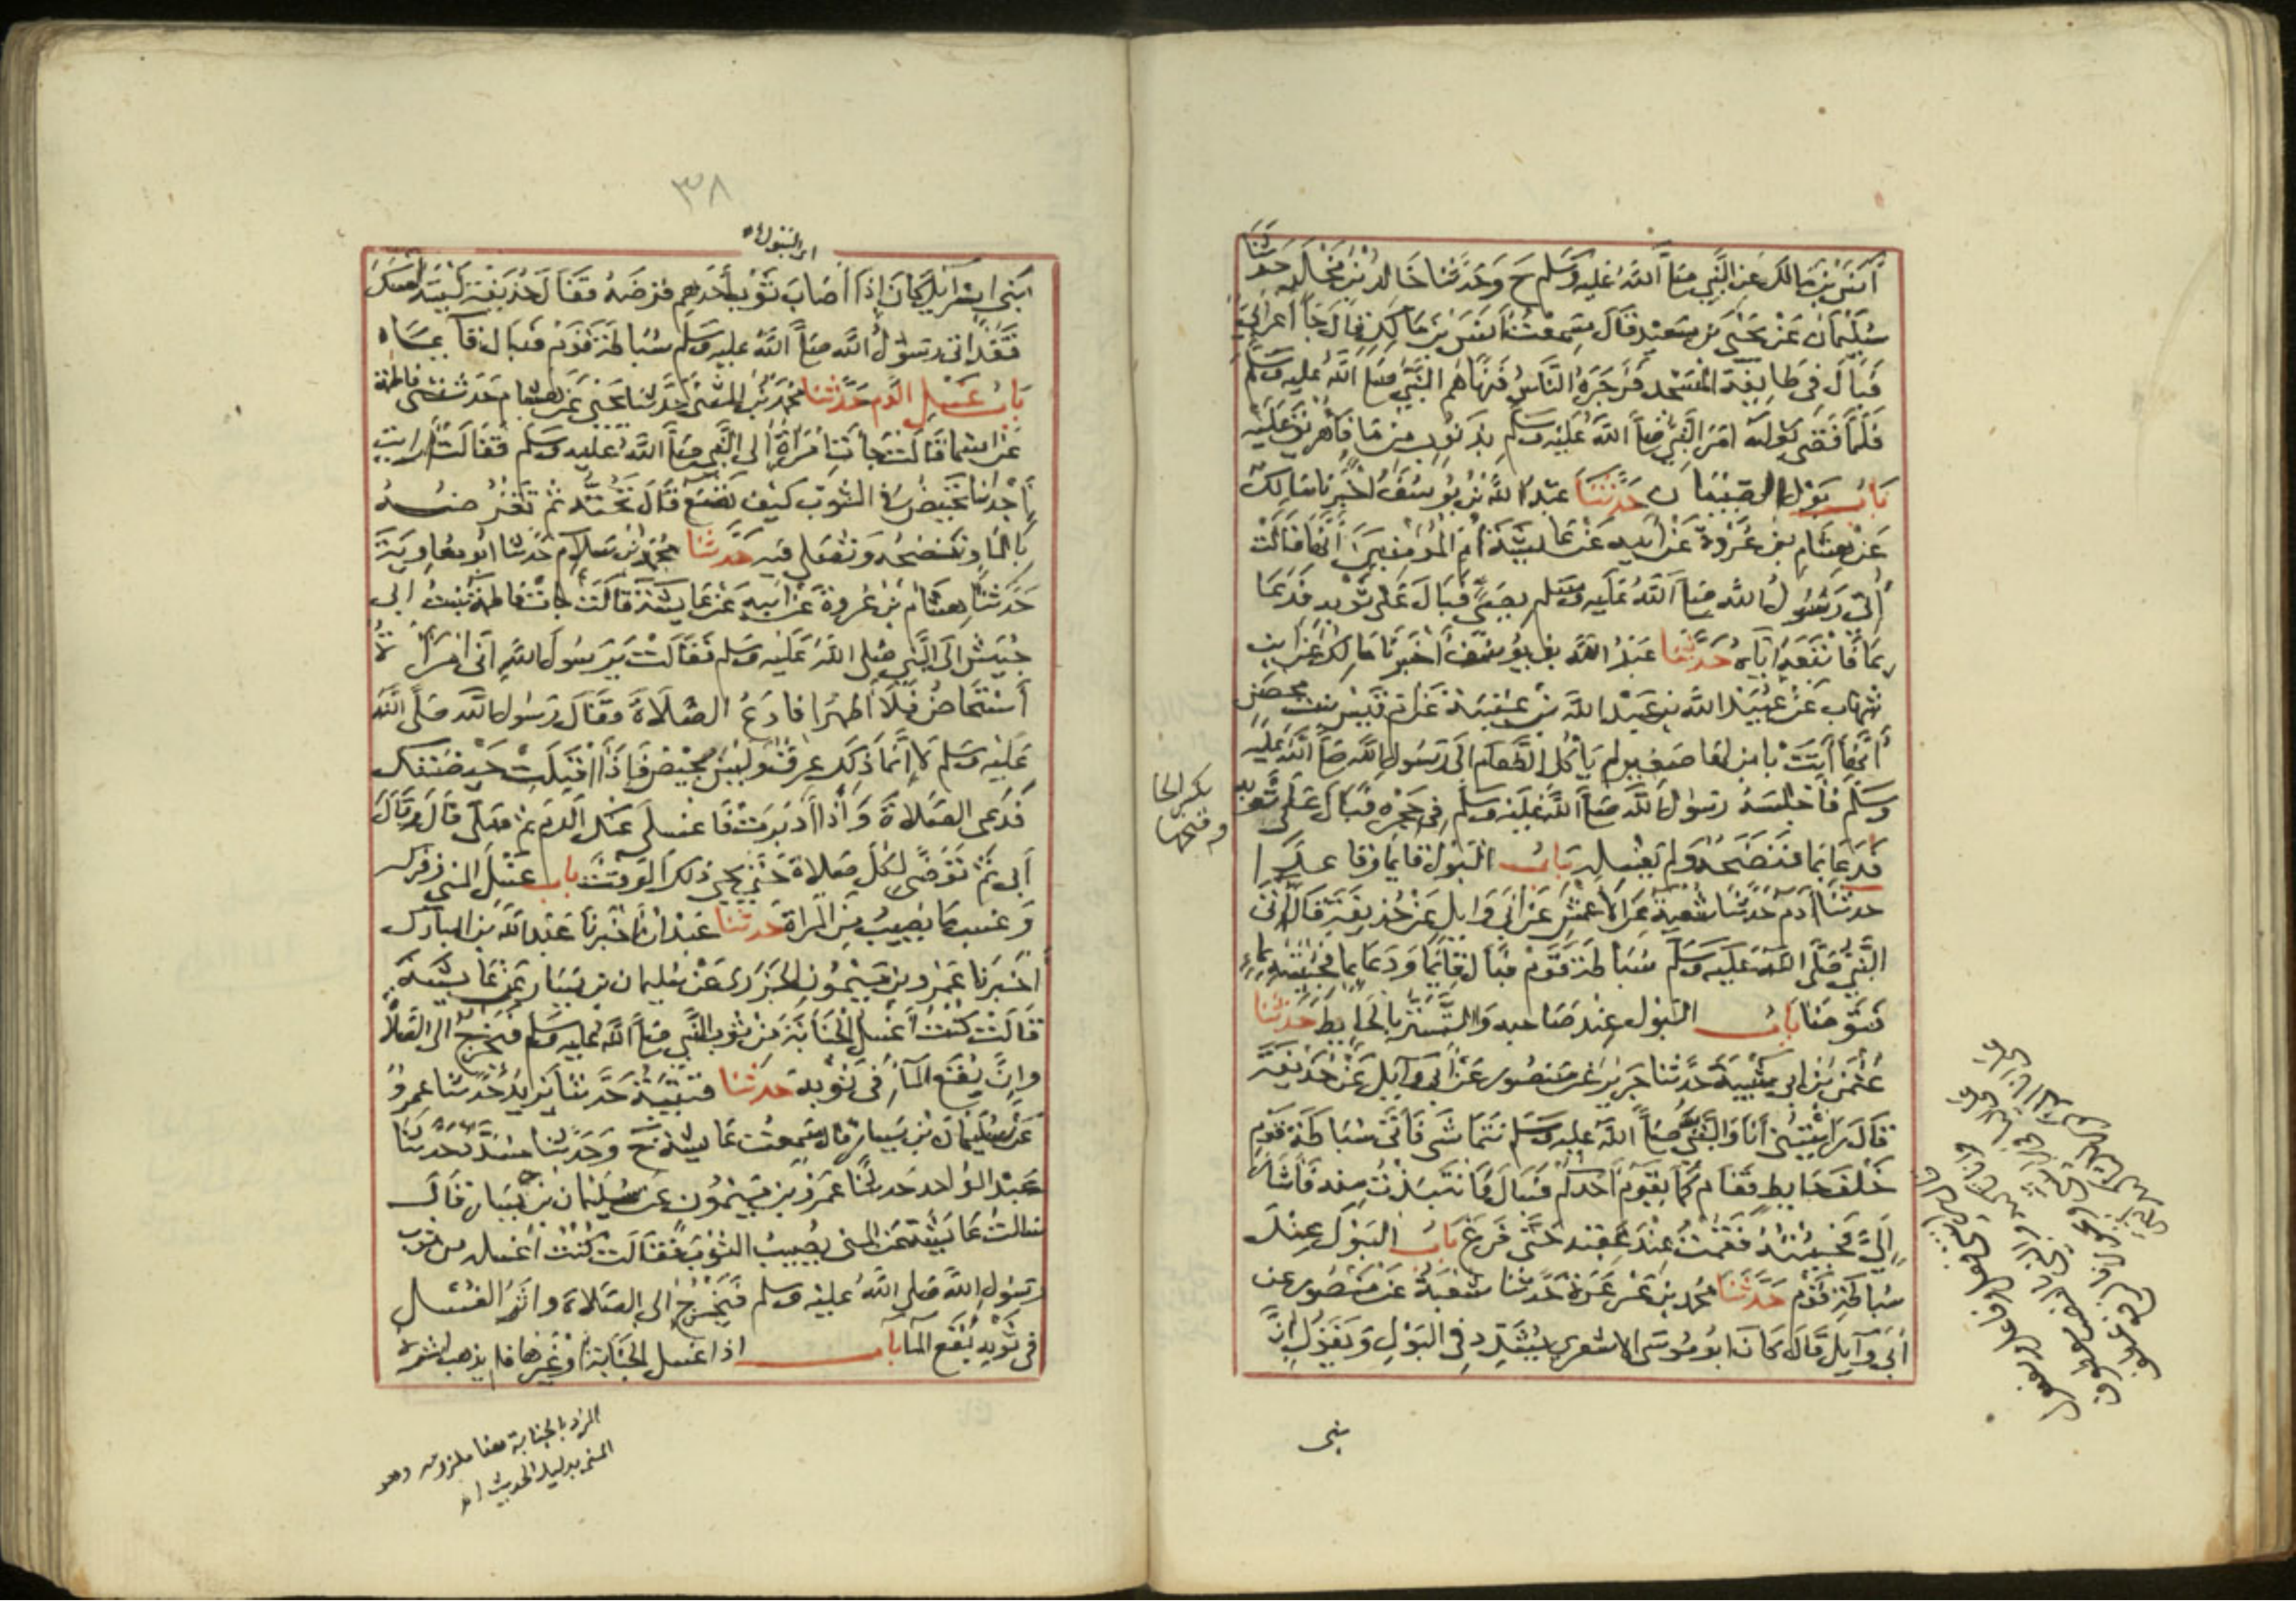 أنس بن مالك عن النبي صلى الله عليه وسلم ح وحدثنا خالد بن مخلد حدثنا
سليمان عن يحيى بن سعيد قال سمعت أنس بن مالك قال جا أعرابي
فبال في طايفة المسجد فزجره الناس فنهاهم النبي صلى الله عليه وسلم
فلما قضى بوله امر النبي صلى الله عليه وسلم بذنوب من ما فأهريق عليه
باب بول الصبيان حدثنا عبد الله بن يوسف أخبرنا مالك
عن هشام بن عروة عن أبيه عن عايشة أم المؤمنين أنها قالت
أتى رسول الله صلى الله عليه وسلم بصبي فبال على ثوبه فدعا
بما فأتبعه اياه حدثنا عبد الله بن يوسف أخبرنا مالك عن ابن
شهاب عن عبيد الله بن عبد الله بن عتبة عن أم قيس بنت محصن
أنها أتت بابن لها صغير لم يأكل الطعام الى رسول الله صلى الله عليه
وسلم فأجلسه رسول الله صلى الله عليه وسلم في حجره فبال على ثوبه
فدعا بما فنضحه ولم يغسله باب البول قايما وقاعدا
حدثنا آدم حدثنا شعبة عن الأعمش عن أبي وايل عن حذيفة قال أتى
النبي صلى الله عليه وسلم سباطة قوم فبال قايما ثم دعا بما فجئته بماء
فتوضا باب البول عند صاحبه والتستر بالحايط حدثنا
عثمن بن ابي شيبة حدثنا جرير عن منصور عن أبي وآيل عن حذيفة
قال رايتني أنا والنبي صلى الله عليه وسلم نتماشى فأتى سباطة قوم
خلف حايط فقام كما يقوم أحدكم فبال فانتبذت منه فأشار
إلي فجئته فقمت عند عقبه حتى فرغ باب البول عند
سباطة قوم حدثنا محمد بن عرعرة حدثنا شعبة عن منصور عن
أبي وآيل قال كان ابو موسى الاشعري يشدد في البول ويقول إن
بكسر الحا
وفتحها
بنى
٣٨
اى البول اه
بني اسرآيل كان إذا أصاب ثوب أحدهم قرضه فقال حذيفة ليته أمسك
فقد اتى رسول الله صلى الله عليه وسلم سباطة قوم فبال قآيما
باب غسل الدم حدثنا محمد بن المثنى حدثنا يحيى عن هشام حدثتنى فاطمة
عن اسما قالت جآت امرأة إلى النبي صلى الله عليه وسلم فقالت أرايت
إحدانا تحيض في الثوب كيف تصنع قال تحته ثم تقرضه
بالما وتنضحه وتصلي فيه حدثنا محمد بن سلام حدثنا أبو معاوية
حدثنا هشام بن عروة عن ابيه عن عايشة قالت جات فاطمة بنت ابي
حبيش الى النبي صلى الله عليه وسلم فقالت يرسول الله اني امرأة
أستحاض فلا أطهر افادع الصلاة فقال رسول الله صلى الله
عليه وسلم لا إنما ذلك عرق وليس بحيض فإذا اقبلت حيضتك
فدعى الصلاة وإذا ادبرت فاغسلي عنك الدم ثم صلى قال وقال
أبى ثم توضي لكل صلاة حتى يجي ذلك الوقت باب غسل المني وفركه
وغسل ما يصيب من المرأة حدثنا عبدان أخبرنا عبد الله بن المبارك
أخبرنا عمرو بن ميمون الجزرى عن سليمان بن يسار عن عايشة
قالت كنت أغسل الجنابة من ثوب النبي صلى الله عليه وسلم فيخرج الى الصلاة
وإن بقع المآ في ثوبه حدثنا قتيبة حدثنا يزيد حدثنا عمرو
عن سليمان بن يسار قال سمعت عايشة ح وحدثنا مسدد حدثنا
عبد الواحد حدثنا عمرو بن ميمون عن سليمان بن يسار قال
سالت عايشة عن المنى يصيب الثوب فقالت كنت أغسله من ثوب
رسول الله صلى الله عليه وسلم فيخرج إلى الصلاة واثر الغسل
في ثوبه بقع المآ باب اذا غسل الجنابة أو غيرها فلم يذهب أثره
المراد بالجنابة هنا ملزومه وهو
المنى بدليل الحديث اه